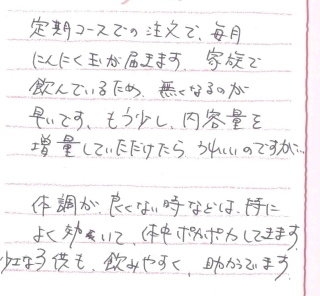 定期コースでの注文で、毎月
にんにく玉が届きます。家族で
飲んでいるため、無くなるのが
早いです。もう少し、内容量を
増量していただけたら、うれしいのですが…
体調が良くない時などは、特に
よく効いて、体中ポカポカしてきます。
小さな子供も、飲みやすく、助かっています。